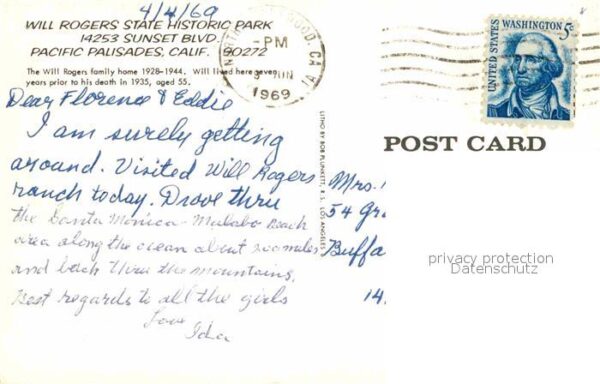 4/4/69
WILL ROGERS STATE HISTORIC PARK
14253 SUNSET BLVD.
PACIFIC PALISADES, CALIF. 90272
The Will Rogers family home 1928-1944. Will lived here seven
years prior to his death in 1935, aged 55.
Dear Florence & Eddie
I am surely getting
around. Visited Will Rogers
ranch today. Drove thru
the Santa Monica - Malabo Beach
area along the ocean about 200 miles
and back thru the mountains.
Best regards to all the girls
Love
Ida
NORTH CA
PM
JUN
1969
UNITED STATES
WASHINGTON 5c
LITHO BY BOB PLUNKETT, LOS ANGELES
POST CARD
Mrs.
54 Gr
Buffa
14
privacy protection
Datenschutz